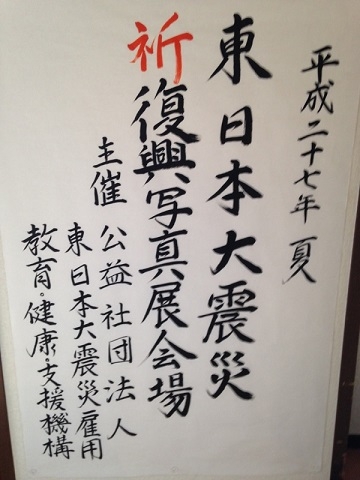 平成二十七年 夏
東日本大震災
祈復興写真展会場
主催 公益社団法人
東日本大震災雇用
教育・健康・支援機構